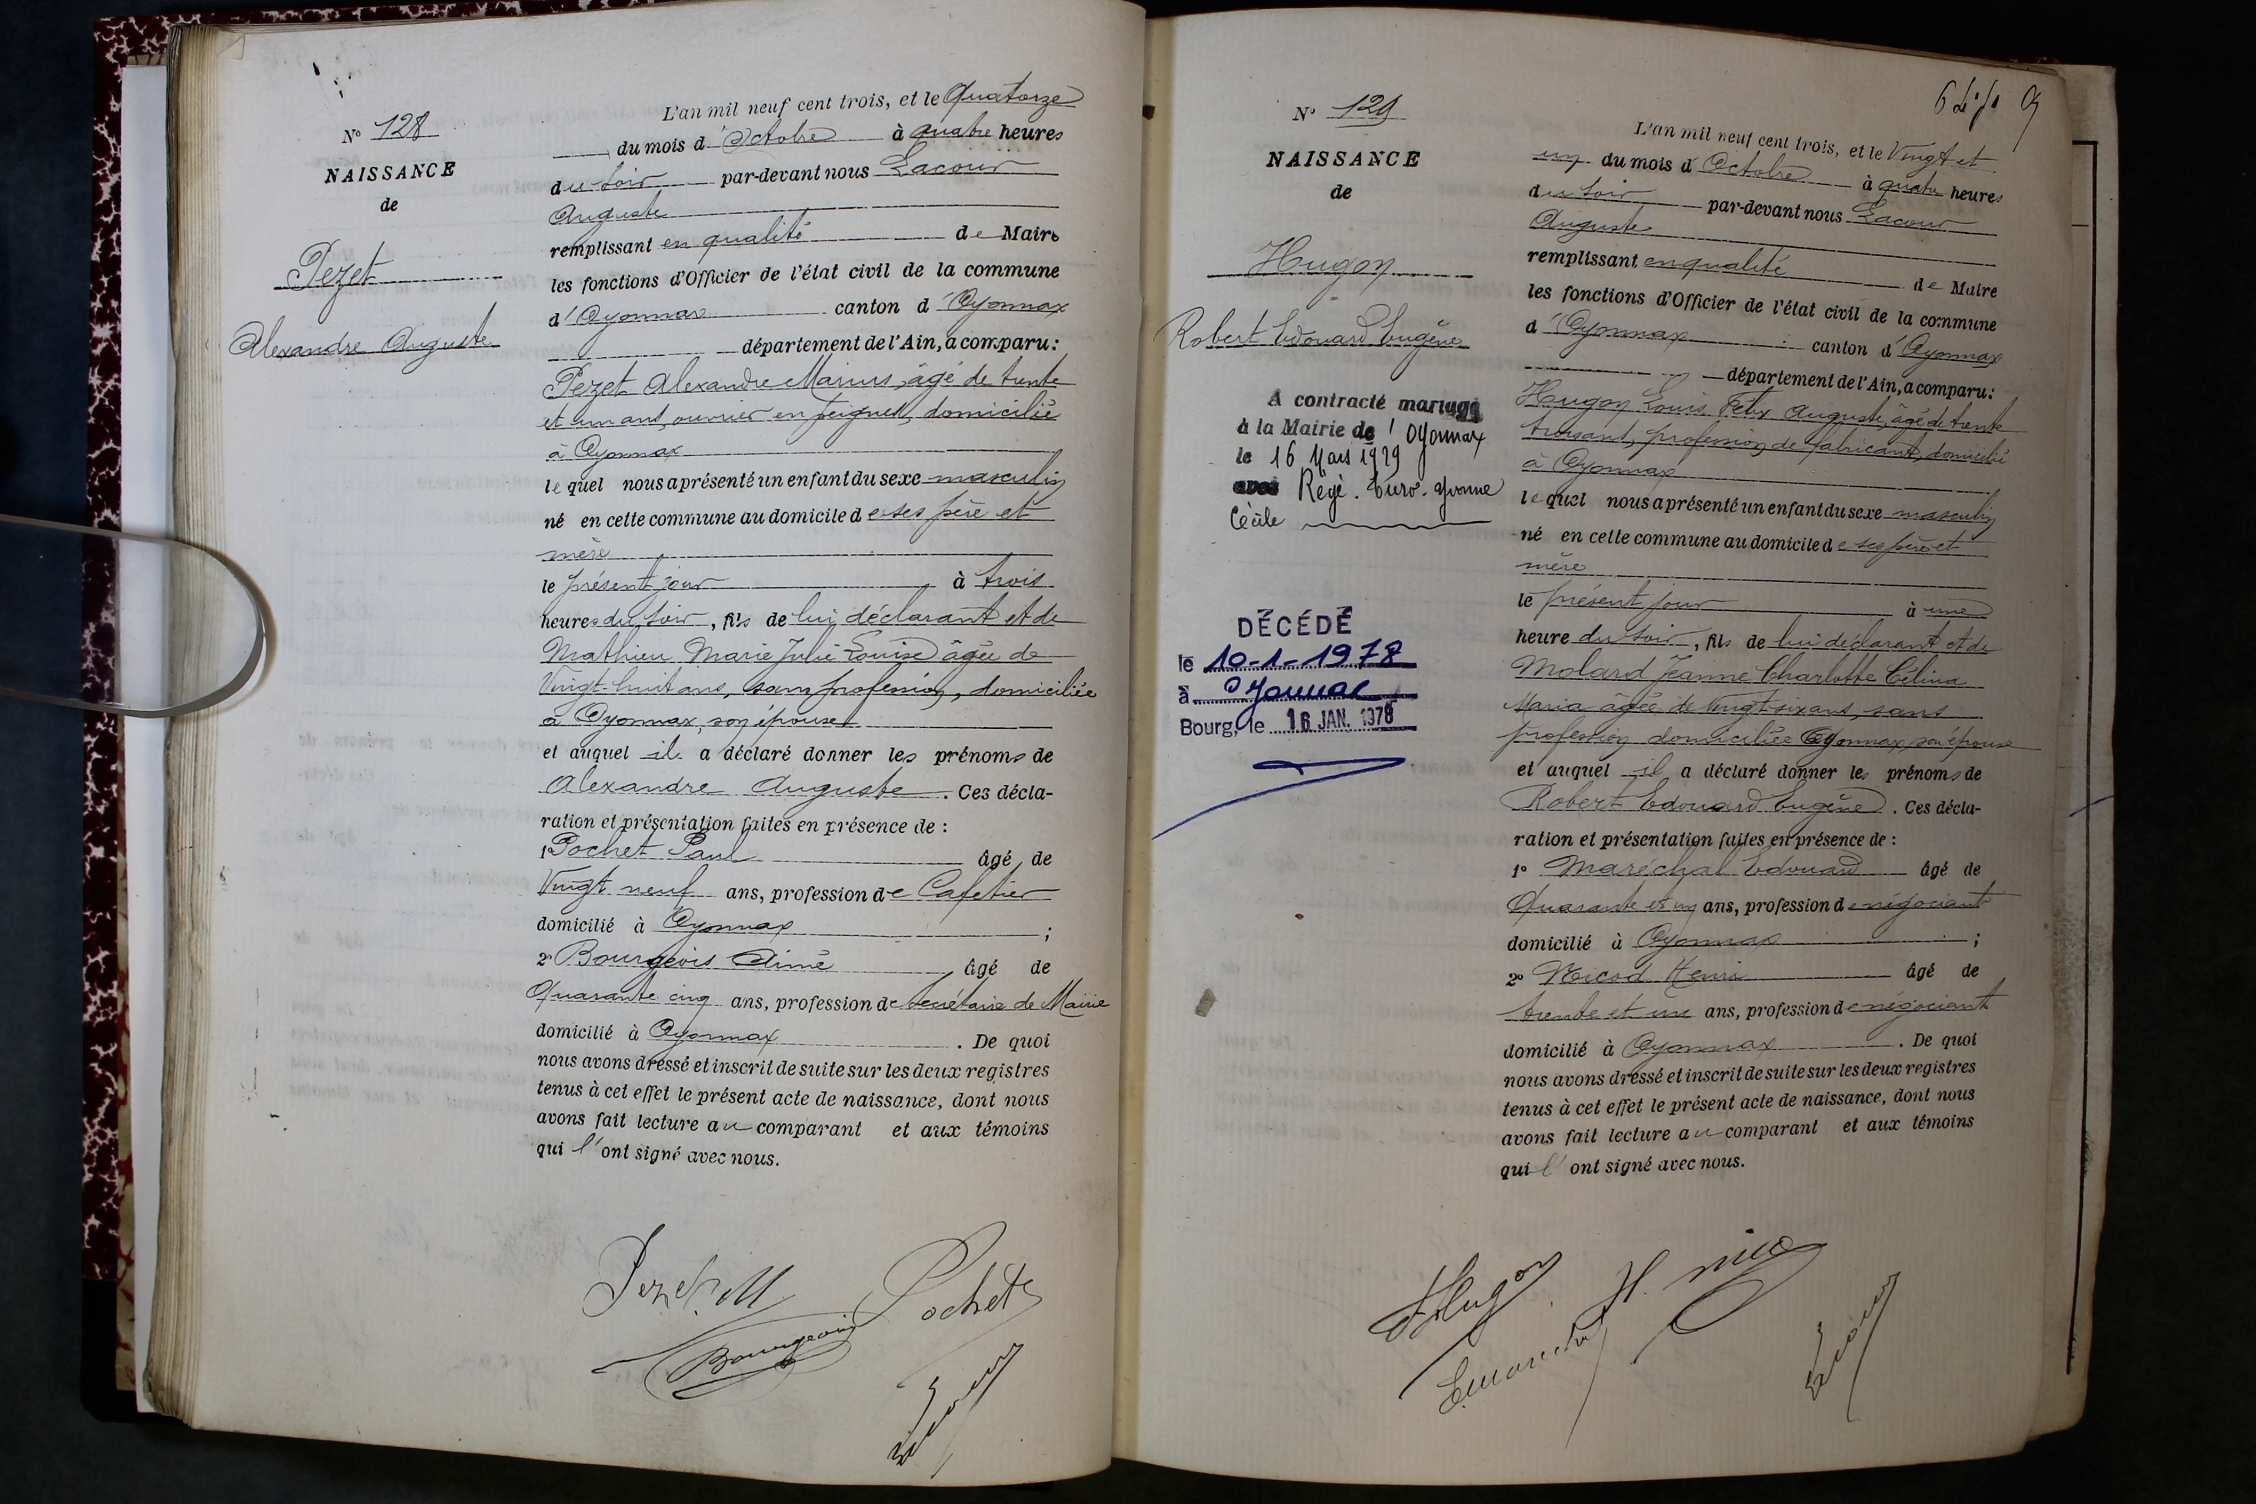 N° 128
NAISSANCE
de
Pezet
Alexandre Auguste
L'an mil neuf cent trois, et le Quatorze
du mois d'Octobre à quatre heures
du soir par-devant nous Lacour
Auguste
remplissant en qualité de Maire
les fonctions d'Officier de l'état civil de la commune
d'Oyonnax canton d'Oyonnax
département de l'Ain, a comparu:
Pezet Alexandre Marius, âgé de trente
et un ans, ouvrier en peignes, domicilié
à Oyonnax
lequel nous a présenté un enfant du sexe masculin
né en cette commune au domicile de ses père et
mère
le présent jour à trois
heures du soir, fils de lui déclarant et de
Mathieu Marie Julie Louise âgée de
Vingt-huit ans, sans profession, domiciliée
à Oyonnax, son épouse
et auquel il a déclaré donner les prénoms de
Alexandre Auguste. Ces décla-
ration et présentation faites en présence de :
1° Pochet Paul âgé de
Vingt neuf ans, profession de Cafetier
domicilié à Oyonnax ;
2° Bourgeois Aimé âgé de
Quarante cinq ans, profession de Secrétaire de Mairie
domicilié à Oyonnax. De quoi
nous avons dressé et inscrit de suite sur les deux registres
tenus à cet effet le présent acte de naissance, dont nous
avons fait lecture au comparant et aux témoins
qui l'ont signé avec nous.
Pezet M Pochet
Bourgeois
Lacour
N° 129
NAISSANCE
de
Hugon
Robert Edouard Eugène
A contracté mariage
à la Mairie de l'Oyonnax
le 16 Mars 1929
avec Régé. Yvonne
Cécile
DÉCÉDÉ
le 10-1-1978
à Oyonnax
Bourg, le 16 JAN. 1978
L'an mil neuf cent trois, et le Vingt et
un du mois d'Octobre à quatre heures
du soir par-devant nous Lacour
Auguste
remplissant en qualité de Maire
les fonctions d'Officier de l'état civil de la commune
d'Oyonnax canton d'Oyonnax
département de l'Ain, a comparu:
Hugon Louis Félix Auguste, âgé de trente
trois ans, profession de fabricant, domicilié
à Oyonnax
lequel nous a présenté un enfant du sexe masculin
né en cette commune au domicile de ses père et
mère
le présent jour à une
heure du soir, fils de lui déclarant et de
Molard Jeanne Charlotte Célina
Maria âgée de vingt-six ans, sans
profession domiciliée Oyonnax, son épouse
et auquel il a déclaré donner les prénoms de
Robert Edouard Eugène. Ces décla-
ration et présentation faites en présence de :
1° Maréchal Edouard âgé de
Quarante et un ans, profession de négociant
domicilié à Oyonnax ;
2° Nicod Henri âgé de
trente et un ans, profession de négociant
domicilié à Oyonnax. De quoi
nous avons dressé et inscrit de suite sur les deux registres
tenus à cet effet le présent acte de naissance, dont nous
avons fait lecture au comparant et aux témoins
qui l'ont signé avec nous.
F Hugon H. Nicod
E. Maréchal
Lacour